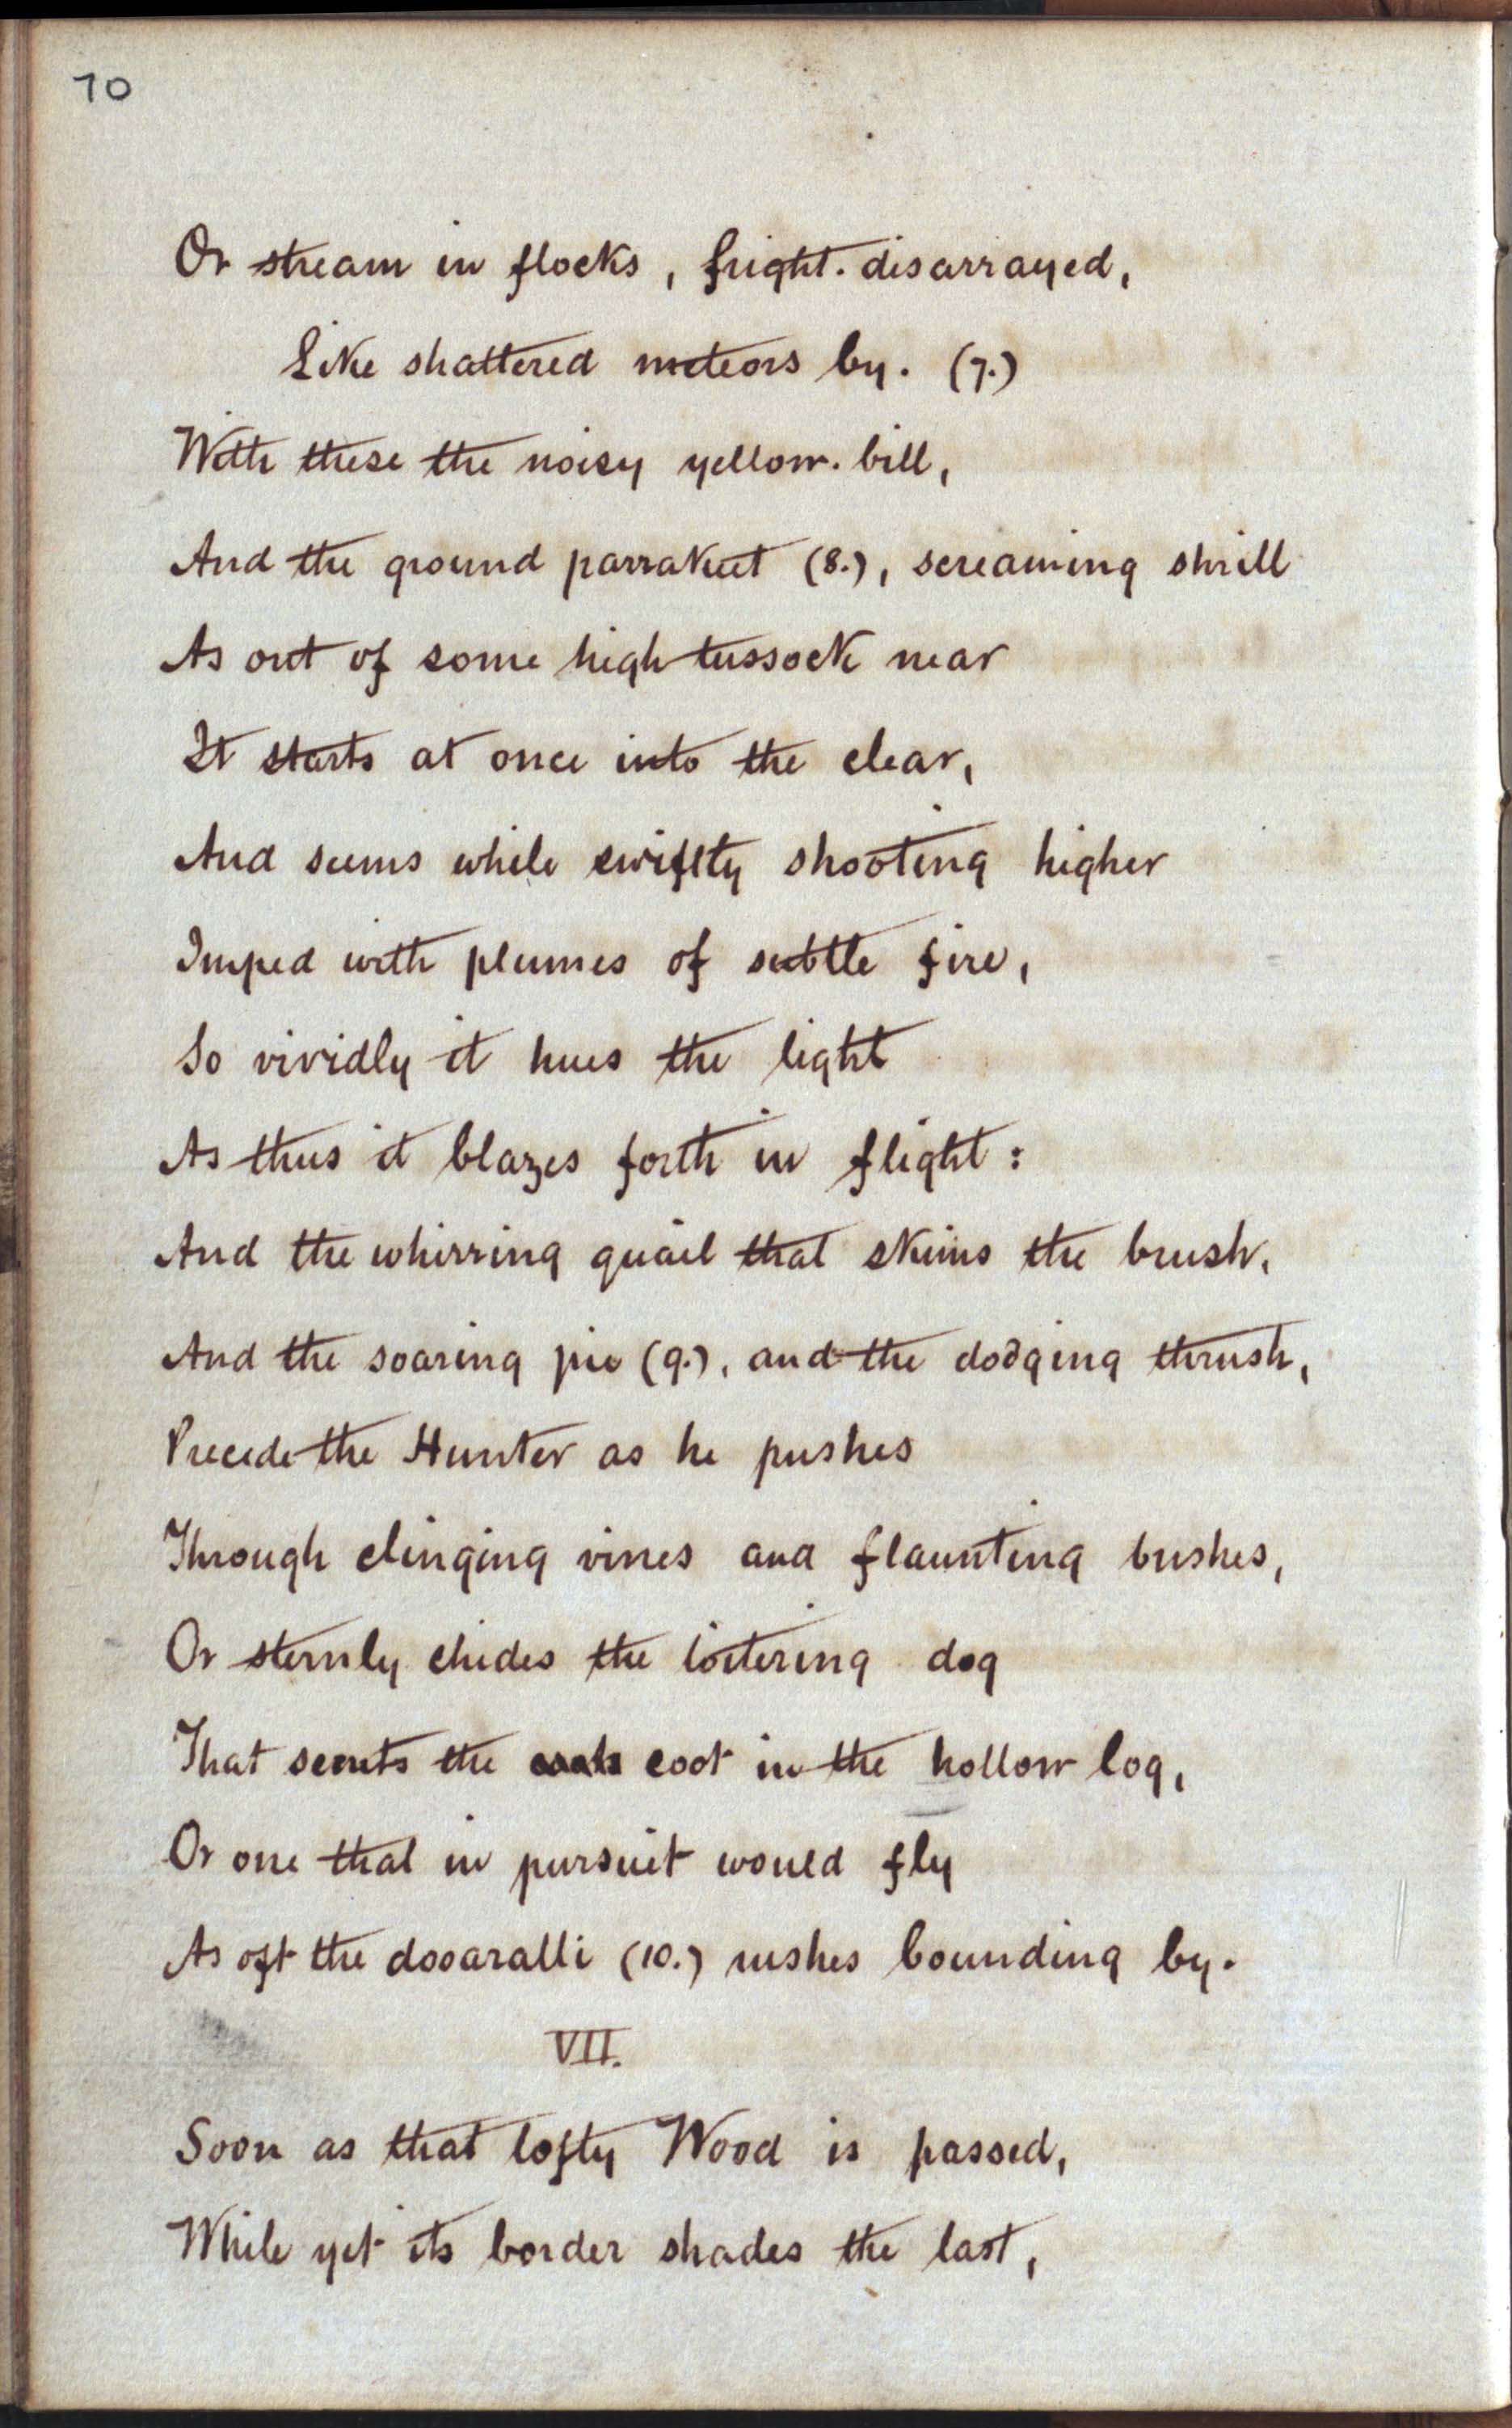 70
Or stream in flocks, fright-disarrayed,
Like shattered meteors by. (7.)
With these the noisy yellow-bill,
And the ground parrakeet (8.), screaming shrill
As out of some high tussock near
It starts at once into the clear,
And seems while swiftly shooting higher
Imped with plumes of subtle fire,
So vividly it hues the light
As thus it blazes forth in flight:
And the whirring quail that skims the brush,
And the soaring pie (9.), and the dodging thrush,
Precede the Hunter as he pushes
Through clinging vines and flaunting bushes,
Or sternly chides the loitering dog
That scents the coot in the hollow log,
Or one that in pursuit would fly
As oft the dooaralli (10.) rushes bounding by.
VII.
Soon as that lofty Wood is passed,
While yet its border shades the last,